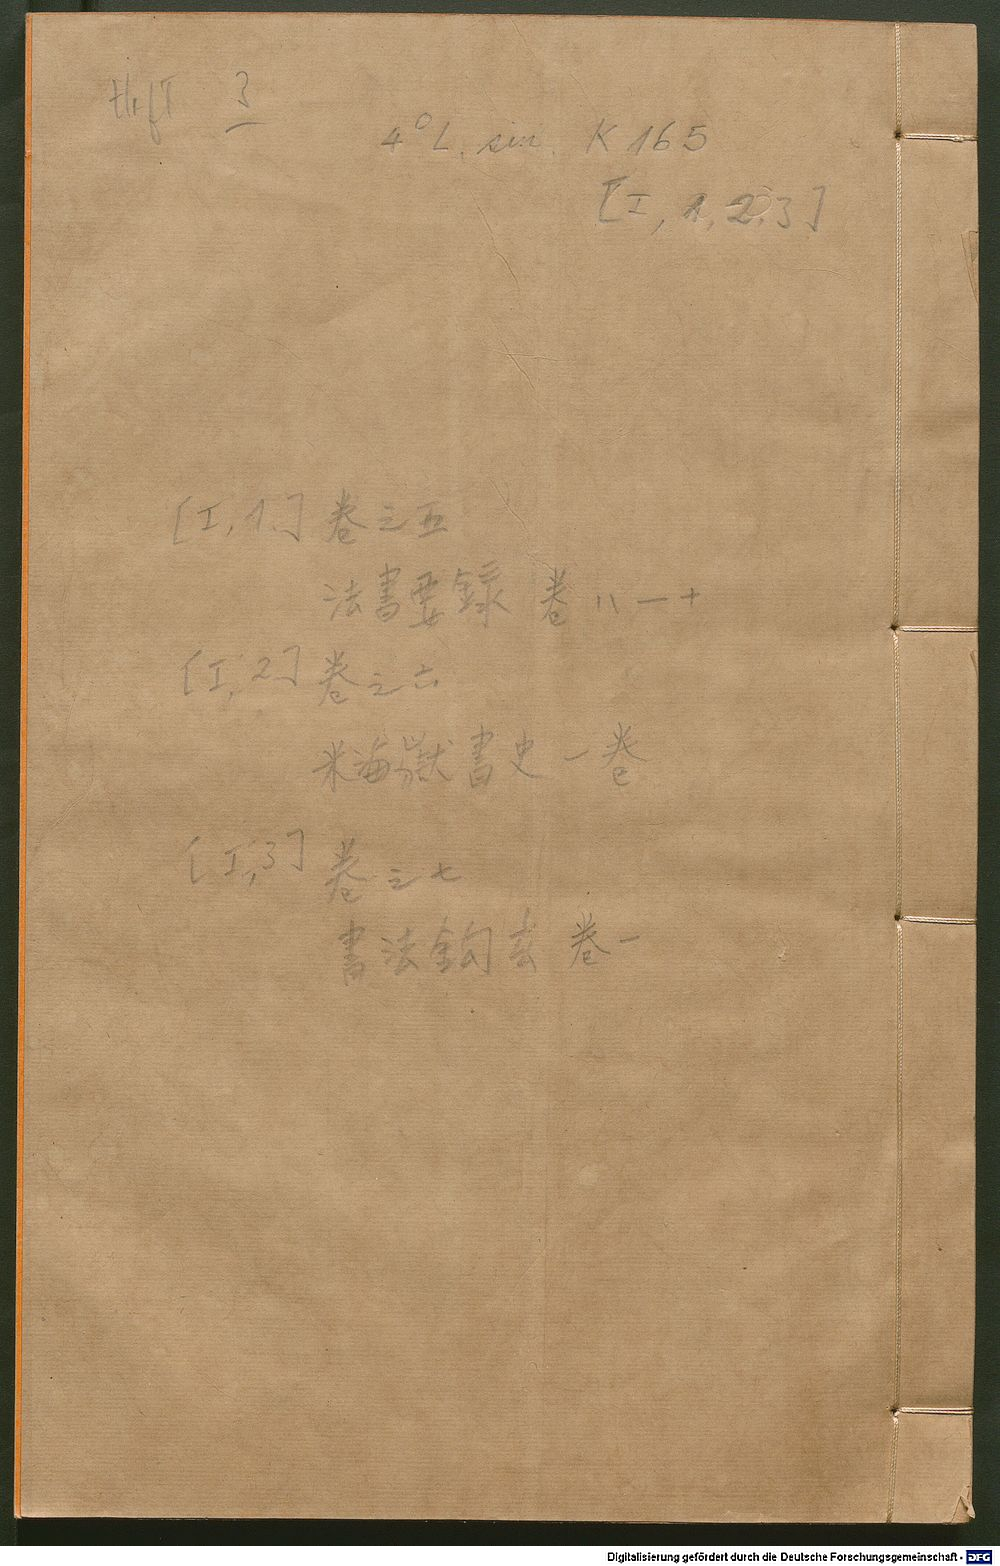 Heft 3
4° L. sin. K 165
[I, 1. 2. 3]
[I, 1.] 卷之五
法書要録 卷八一十
[I, 2] 卷之六
米海嶽書史一卷
[I, 3] 卷之七
書法鉤玄 卷一
Digitalisierung gefördert durch die Deutsche Forschungsgemeinschaft - DFG